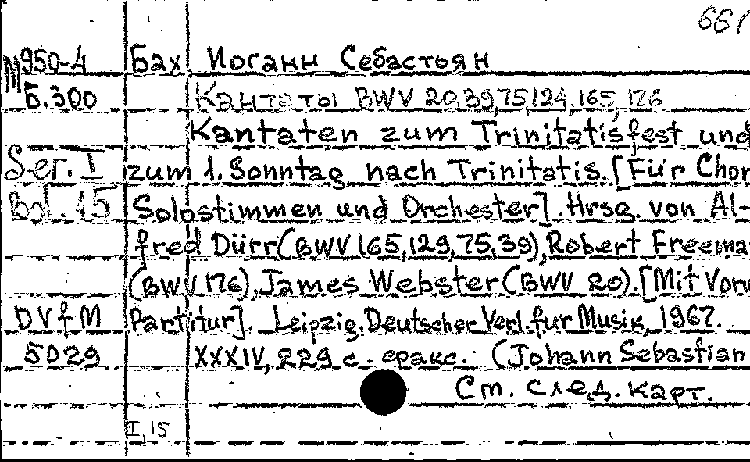 661
М950-4 Бах Иоганн Себастьян
Б.300 Кантаты BWV 20,39,75,124,165,176
Kantaten zum Trinitatisfest und
Ser. I zum 1. Sonntag nach Trinitatis. [Für Chor
Bd. 15 Solostimmen und Orchester]. Hrsg. von Al-
fred Dürr (BWV 165,129,75,39), Robert Freema
(BWV 176), James Webster (BWV 20). [Mit Vorw
DVfM Partitur]. Leipzig. Deutscher Verl. für Musik, 1967.
5029 XXXIV, 229 с. факс. (Johann Sebastian
См. след. карт.
I,15